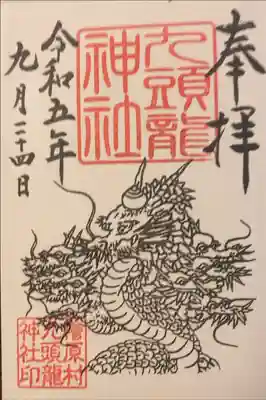 奉拝
九頭龍
神社
令和五年
九月二十四日
檜原村
九頭龍
神社印